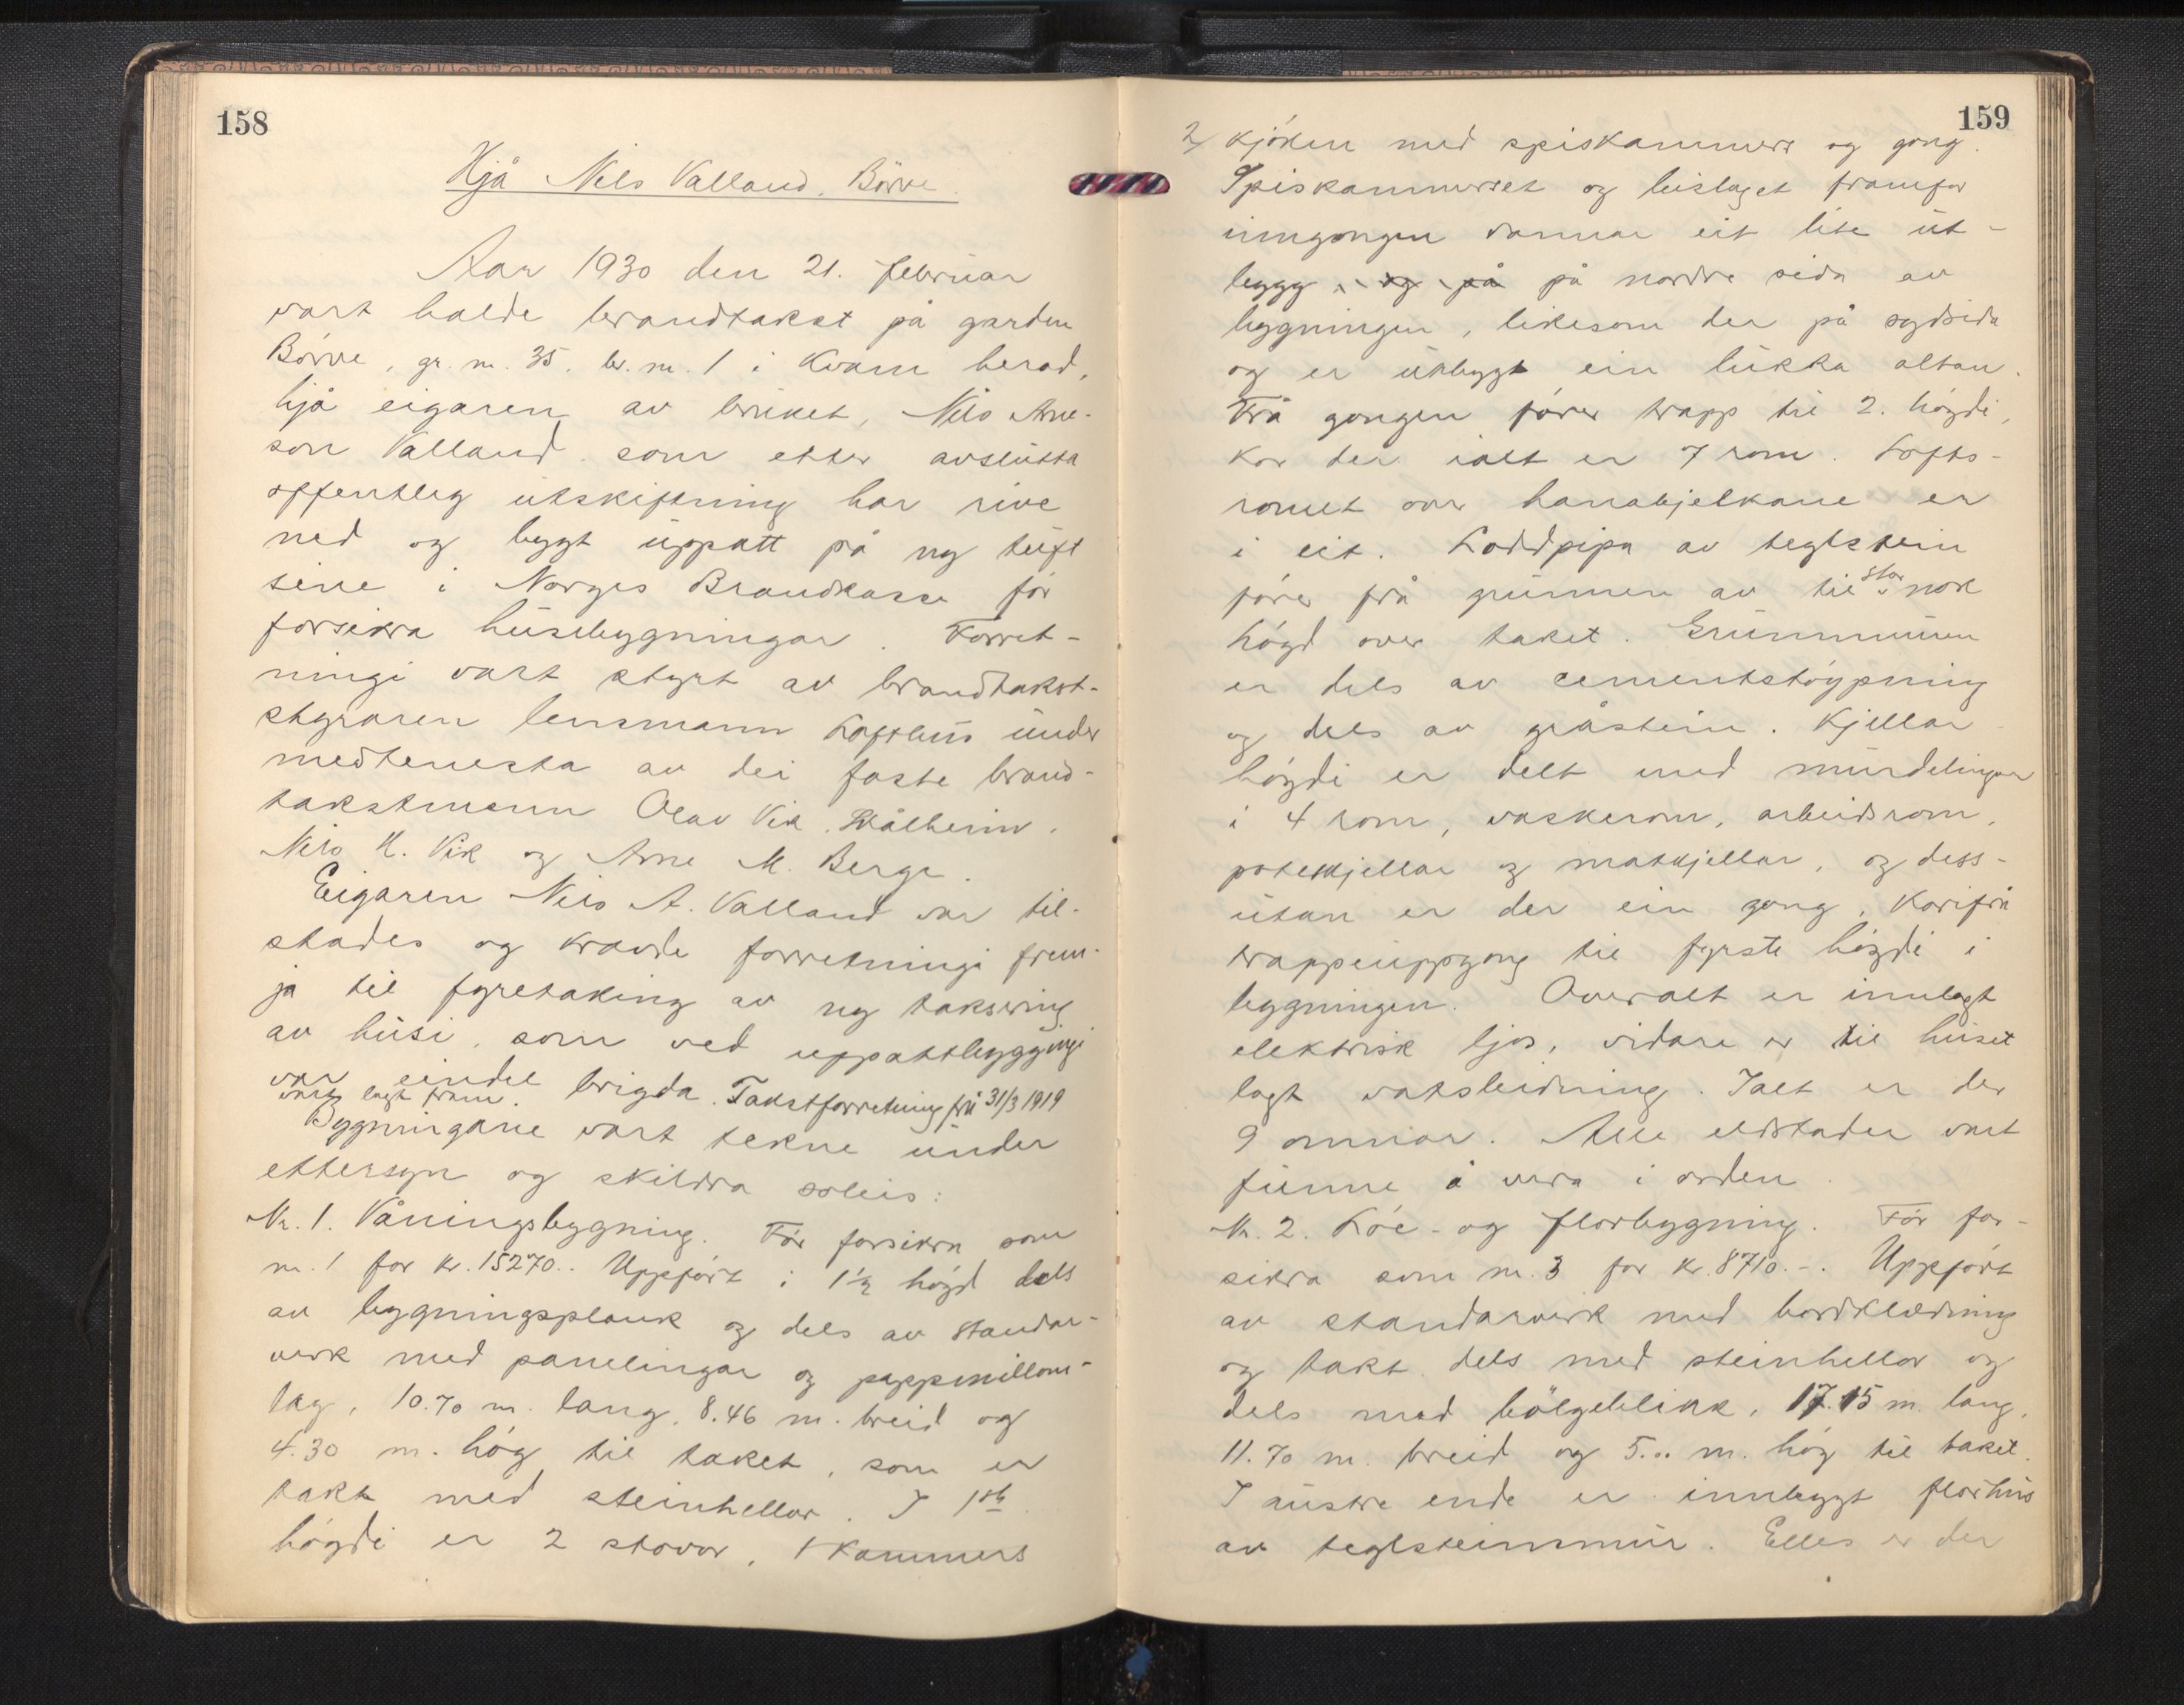 158
Hjå Nils Valland, Börve.
Aar 1930 den 21. februar
vart halde brandtakst på garden
Börve, gr. nr. 35, br. nr. 1 i Kvam herad,
hjå eigaren av bruket, Nils Arne-
son Valland som etter avslutta
offentleg utskiftning har rive
ned og bygt uppatt på ny tuft
sine i Norges Brandkasse för
forsikra husebygningar. Forret-
ningi vart styrt av brandtakst-
styraren lensmann Lofthus under
medtenesta av dei faste brand-
takstmenn Olav Vik, Skålheim,
Nils H. Vik og Arne M. Berge.
Eigaren Nils A. Valland var til-
stades og kravde forretningi frem-
ja til fyretaking av ny taksering
av husi, som ved uppattbyggingi
var eindel brigda. Takstforretning frå 31/3 1919
vart lagt fram.
Bygningane vart tekne under
ettersyn og skildra soleis:
Nr. 1. Våningsbygning. För forsikra som
nr. 1 for kr. 15270.. Uppfört i 1½ högd dels
av bygningsplank og dels av standar-
verk med panelingar og pappmillom-
lag, 10.70 m. lang, 8.46 m. breid og
4.30 m. hög til taket, som er
takt med steinhellor. I 1ste
högdi er 2 stovor, 1 kammers
159
2/ kjöken med spiskammers og gong.
Spiskammerset og bislaget framfor
inngongen dannar eit lite ut-
bygg, og på på nordre sida av
bygningen, likesom der på sydsida
og er utbygt ein lukka altan.
Frå gongen förer trapp til 2. högdi,
kor der ialt er 7 rom. Lofts-
romet over hanabjelkane er
i eit. Loddpipa av teglstein
förer frå grunnen av til stor nok
högd over taket. Grunnmuren
er dels av cementstöypning
og dels av gråstein. Kjellar
högdi er delt med murdelingar
i 4 rom, vaskerom, arbeidsrom,
potetkjellar og matkjellar, og dess-
utan er der ein gong, korifrå
trappeuppgong til fyrste högdi i
bygningen. Overalt er innlagt
elektrisk ljos, vidare er til huset
lagt vatsleidning. Ialt er der
9 omnar. Alle eldstader vart
funne å vera i orden.
Nr. 2. Löe- og florbygning. För for-
sikra som nr. 3 for kr. 8710.-. Uppfört
av standarverk med bordklædning
og takt dels med steinhellor og
dels med bölgeblikk, 17.15 m. lang,
11.70 m. breid og 5.00 m. hög til taket.
I austre ende er innbygt florhus
av teglsteinsmur. Elles er der